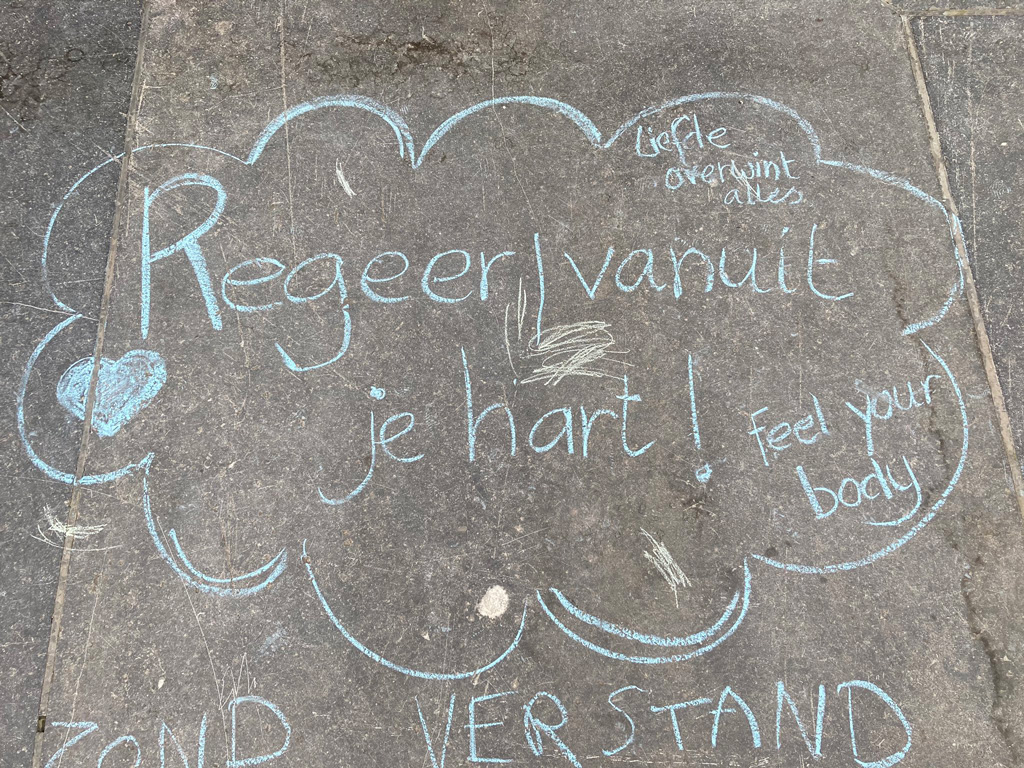 Liefde
overwint
alles
Regeer vanuit
je hart!
feel your
body
ZOND VERSTAND